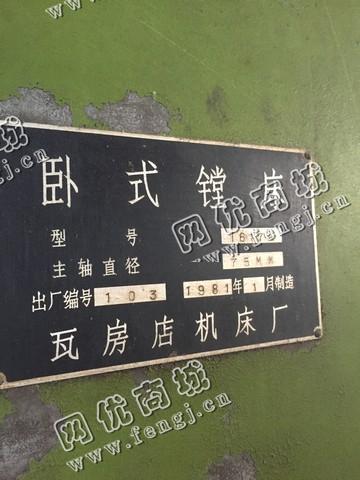 卧式镗床
型号
主轴直径 75MM
出厂编号 103 1981年1月制造
瓦房店机床厂
网优商城
www.fengj.cn
网优商城
www.fengj.cn
网优商城
www.fengj.cn